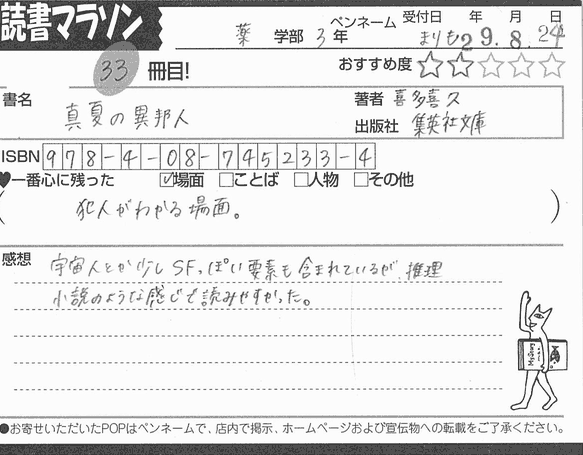 読書マラソン
ペンネーム 受付日 年 月 日
薬 学部 3 年 まりも 29.8.24
33 冊目!
おすすめ度 ☆☆☆☆☆
書名 真夏の異邦人
著者 喜多喜久
出版社 集英社文庫
ISBN 978-4-08-745233-4
♥一番心に残った ☑場面 □ことば □人物 □その他
( 犯人がわかる場面。 )
感想 宇宙人とか少しSFっぽい要素も含まれているが、推理
小説のような感じで読みやすかった。
●お寄せいただいたPOPはペンネームで、店内で掲示、ホームページおよび宣伝物への転載をご了承ください。